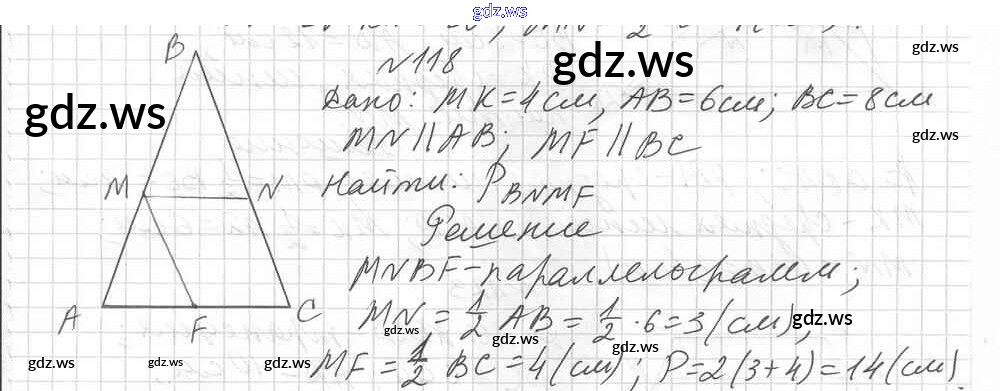 gdz.ws
№118
gdz.ws
gdz.ws
Дано: MK=4см, AB=6см; BC=8см
gdz.ws
MN||AB; MF||BC
gdz.ws
Найти: P_BNMF
Решение
MNBF-параллелограмм;
MN=1/2 AB=1/2·6=3(см);
gdz.ws
gdz.ws
MF=1/2 BC=4(см); P=2(3+4)=14(см)
gdz.ws
gdz.ws
gdz.ws
gdz.ws
gdz.ws
gdz.ws
B
M
N
A
F
C